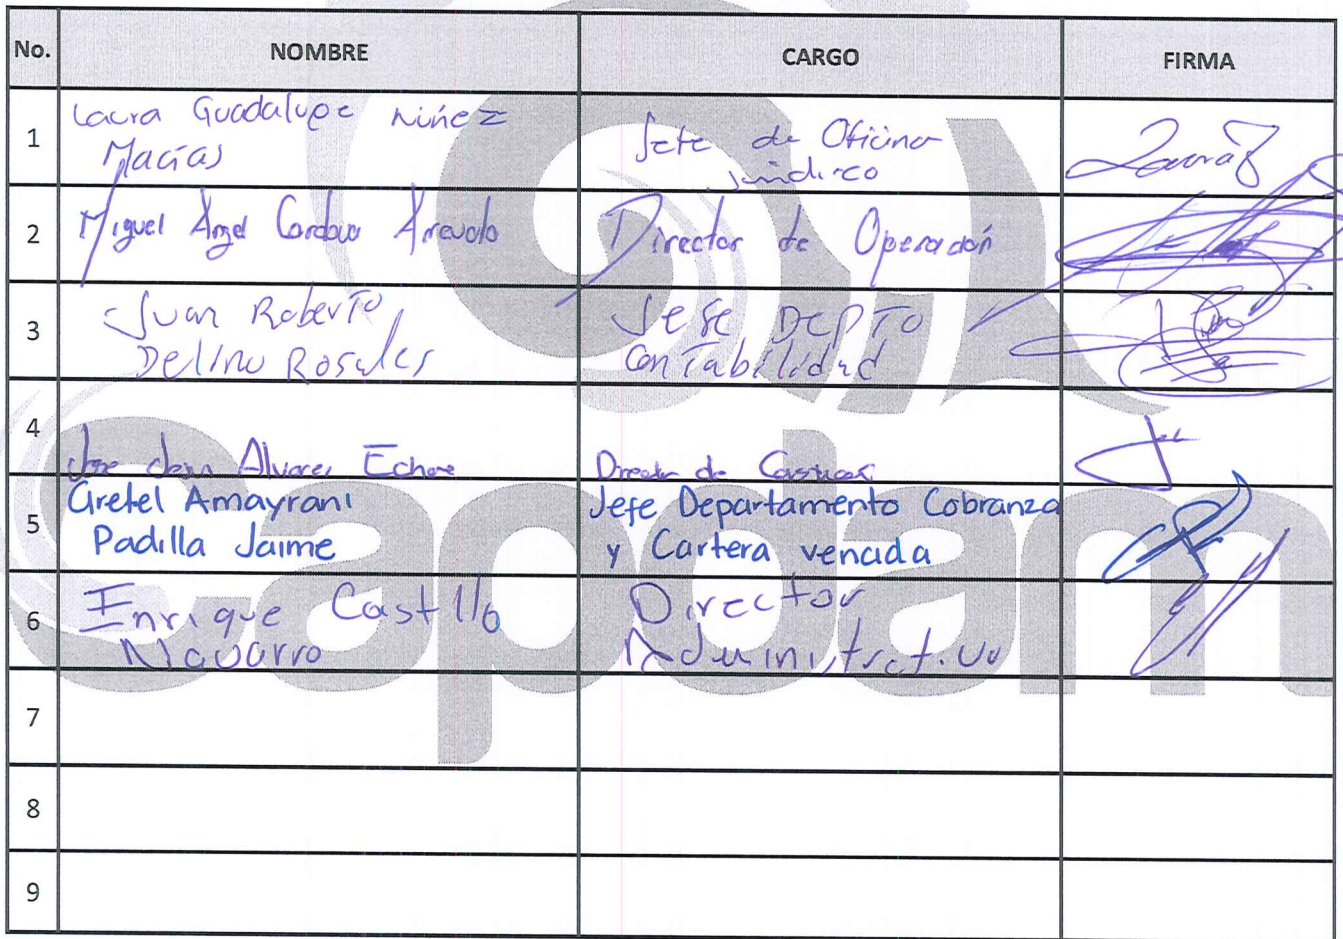 No. NOMBRE CARGO FIRMA
1 Laura Guadalupe Núñez
Macías
Jefe de Oficina
Jurídico
Laura
2 Miguel Angel Cordova Arevalo Director de Operación
3 Juan Roberto
Delino Rosales
Jefe DEPTO
Contabilidad
4 Alvarez Director de
5 Gretel Amayrani
Padilla Jaime
Jefe Departamento Cobranza
y Cartera vencida
6 Enrique Castillo
Navarro
Director
Administrativo
7
8
9
capdam